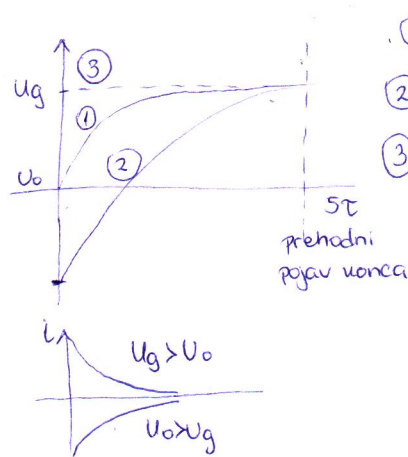 ③
Ug
①
②
U₀
5τ
prehodni
pojav konca
②
③
i
Ug > U₀
U₀ > Ug